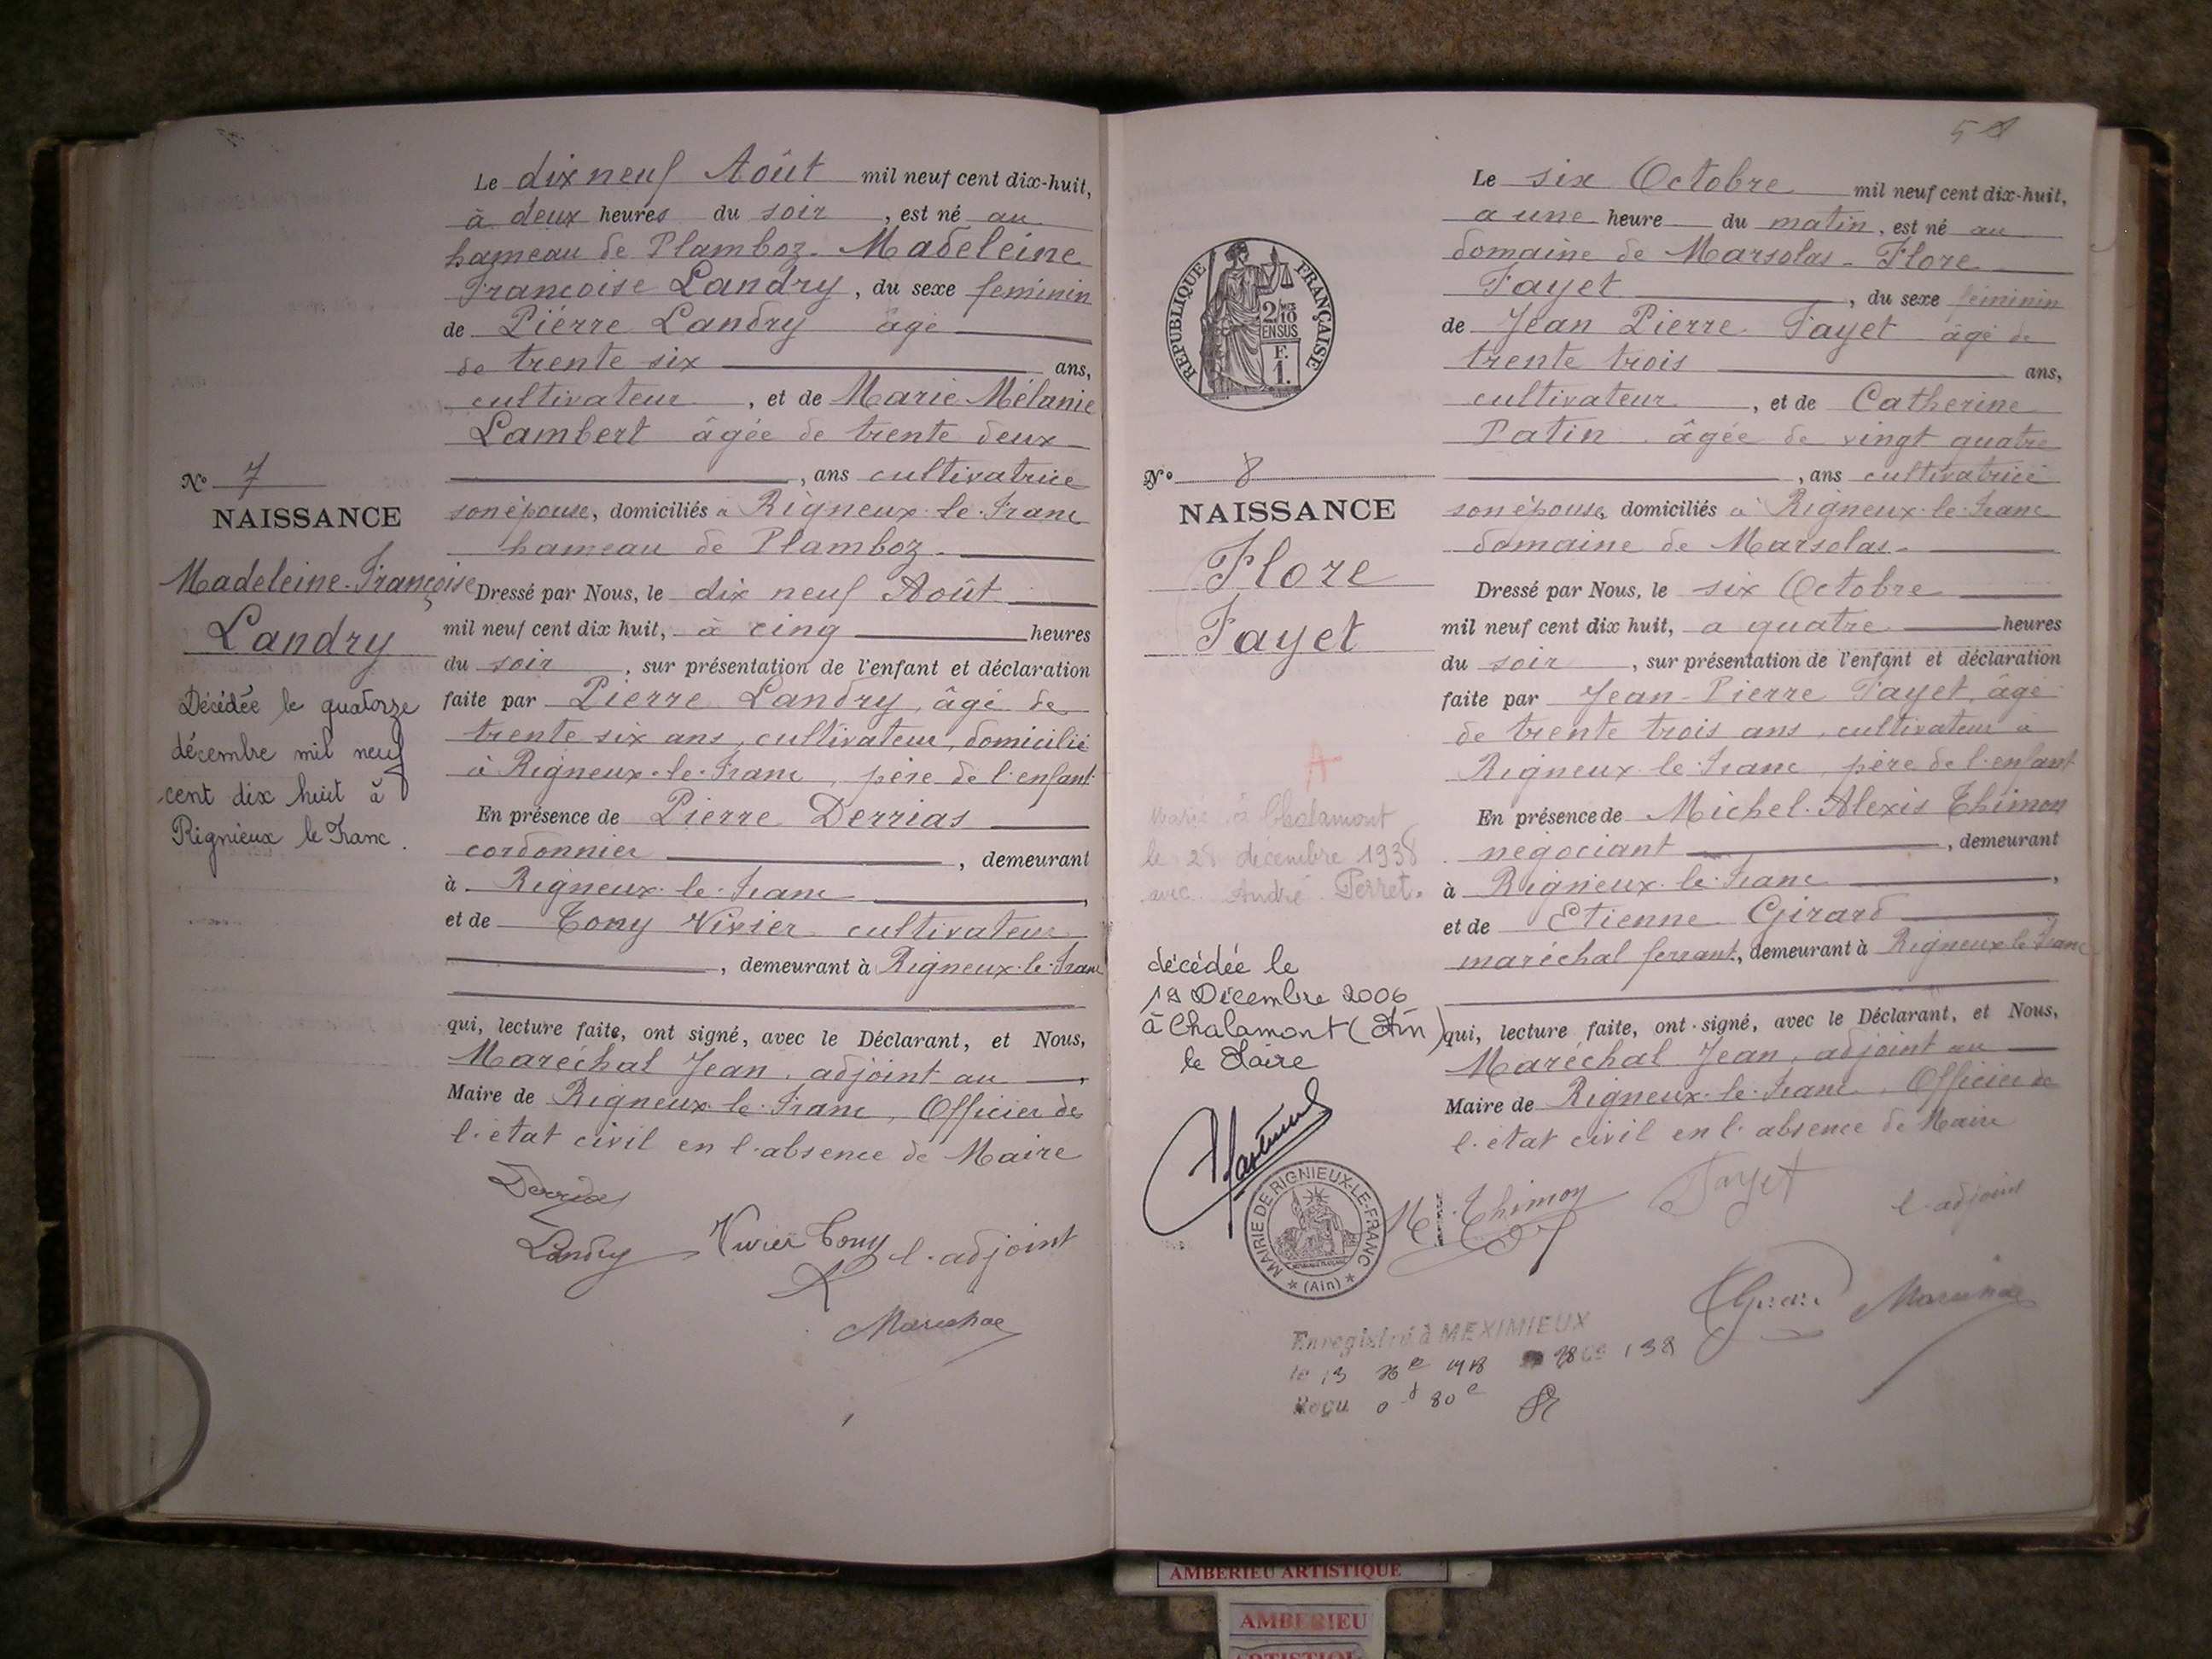 Le dix neuf Août mil neuf cent dix-huit,
à deux heures du soir, est né au
hameau de Plamboz. Madeleine
Françoise Landry, du sexe feminin
de Pierre Landry âgé
de trente six ans,
cultivateur, et de Marie Mélanie
Lambert âgée de trente deux
, ans cultivatrice
son épouse, domiciliés à Rigneux-le-Franc
hameau de Plamboz.
Dressé par Nous, le dix neuf Août
mil neuf cent dix huit, à cinq heures
du soir, sur présentation de l'enfant et déclaration
faite par Pierre Landry, âgé de
trente six ans, cultivateur, domicilié
à Rigneux-le-Franc, père de l'enfant
En présence de Pierre Derrias
cordonnier, demeurant
à Rigneux-le-Franc,
et de Tony Vivier cultivateur
, demeurant à Rigneux-le-Franc
qui, lecture faite, ont signé, avec le Déclarant, et Nous,
Maréchal Jean, adjoint au
Maire de Rigneux-le-Franc, Officier de
l'état civil en l'absence de Maire
Derrias
Landry Vivier Tony l'adjoint
Marechal
N° 7
NAISSANCE
Madeleine-Françoise
Landry
Décédée le quatorze
décembre mil neuf
cent dix huit à
Rignieux le Franc.
5
RÉPUBLIQUE FRANÇAISE
2/10
EN SUS
F.
1.
N° 8
NAISSANCE
Flore
Fayet
A
Marié à Chalamont
le 28 décembre 1938
avec André Perret.
décédée le
19 Décembre 2006
à Chalamont (Ain)
le Maire
MAIRIE DE RIGNIEUX-LE-FRANC
* (Ain) *
Le six Octobre mil neuf cent dix-huit,
a une heure du matin, est né au
domaine de Marsolas - Flore
Fayet, du sexe féminin
de Jean Pierre Fayet âgé de
trente trois ans,
cultivateur, et de Catherine
Patin âgée de vingt quatre
, ans cultivatrice
son épouse, domiciliés à Rigneux-le-Franc
domaine de Marsolas.
Dressé par Nous, le six Octobre
mil neuf cent dix huit, a quatre heures
du soir, sur présentation de l'enfant et déclaration
faite par Jean-Pierre Fayet, âgé
de trente trois ans, cultivateur à
Rigneux-le-Franc, père de l'enfant
En présence de Michel-Alexis Thimon
négociant, demeurant
à Rigneux-le-Franc,
et de Etienne Girard
maréchal ferrant, demeurant à Rigneux le Franc
qui, lecture faite, ont signé, avec le Déclarant, et Nous,
Maréchal Jean, adjoint au
Maire de Rigneux-le-Franc. Officier de
l'état civil en l'absence de Maire
M. Thimon Fayet l'adjoint
Girard Marechal
Enregistré à MEXIMIEUX
le 13 1918
Reçu 0 f 80 c
AMBERIEU ARTISTIQUE
AMBERIEU
ARTISTIQUE